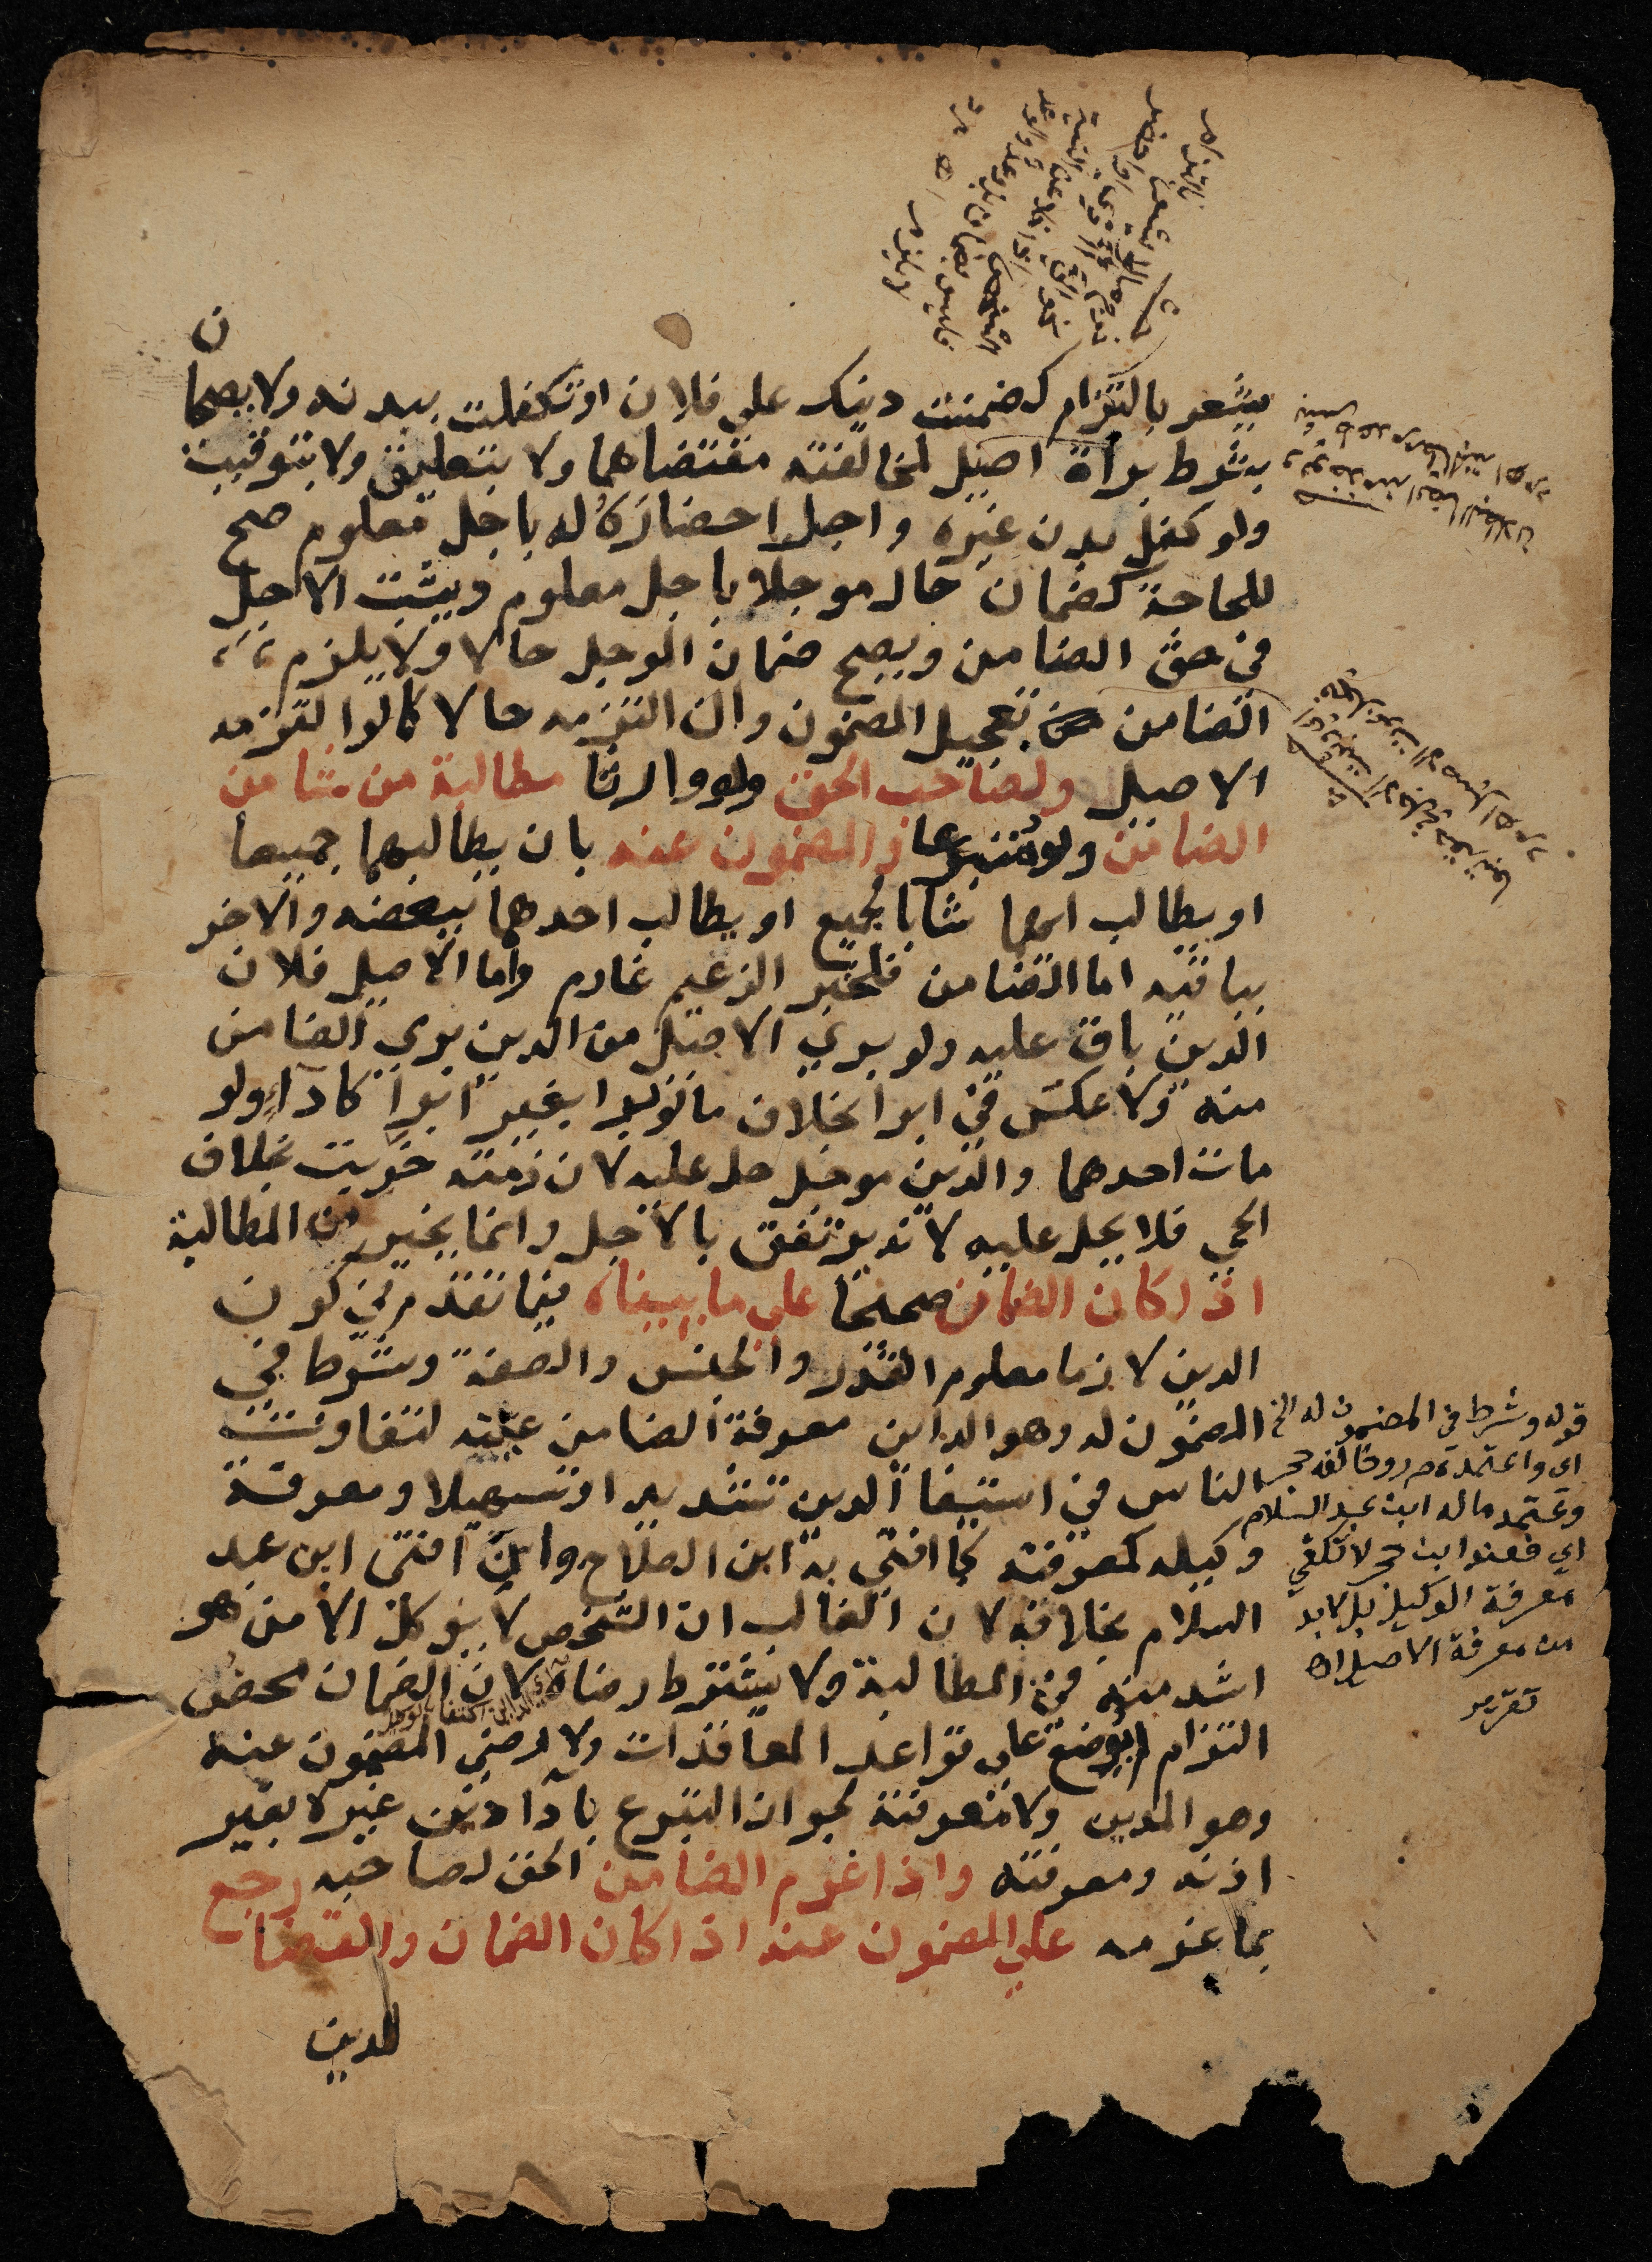 يشعر بالتزام كضمنت دينك على فلان او تكفلت ببدنه ولا يصحان
بشرط براة اصيل لمخالفته مقتضاهما ولا بتعليق ولا بتوقيت
ولو كفل بدن غيره واجل احضاره له باجل معلوم صح
للحاجة كضمان حال موجلا باجل معلوم ويثبت الاجل
في حق الضامن ويصح ضمان الموجل حالا ولا يلزم
الضامن تعجيل المضمون وان التزمه حالا كما لو التزمه
الاصيل ولصاحب الحق ولو وارثا مطالبة من شا من
الضامن ولو متبرعا والمضمون عنه بان يطالبهما جميعا
او يطالب ايهما شا بالجميع او يطالب احدهما ببعضه والاخر
بباقيه اما الضامن فلخبر الزعيم غارم واما الاصيل فلان
الدين باق عليه ولو بري الاصيل من الدين بري الضامن
منه ولا عكس في ابرا بخلاف ما لو برا بغير ابرا كادا ولو
مات احدهما والدين موجل حل عليه لان ذمته خربت بخلاف
الحي فلا يحل عليه لانه يرتفق بالاجل وانما يخير من المطالبة
اذا كان الضمان صحيحا على ما بيناه فيما تقدم من كون
الدين لازما معلوم القدر والجنس والصفة وشرط في
المضمون له وهو الداين معرفة الضامن عينه لتفاوت
الناس في استيفا الدين تشديدا وتسهيلا ومعرفة
وكيله كمعرفته كما افتى به ابن الصلاح وان افتى ابن عبد
السلام بخلافه لان الغالب ان الشخص لا يوكل الا من هو
اشد منه في المطالبة ولا يشترط رضاه لان الضمان محض
التزام لم يوضع على قواعد المعاقدات ولا رضي المضمون عنه
وهو المدين ولا معرفته لجواز التبرع بادا دين غيره بغير
اذنه ومعرفته واذا غرم الضامن الحق لصاحبه رجع
بما غرمه على المضمون عنه اذا كان الضمان والقضا
للدين
قوله وشرط في المضمون له الخ
اي واعتمده م ر وخالفه حجر
وعتمد ما له ابن عبد السلام
اي فعند ابن حجر لا تكفي
معرفة الوكيل بل لا بد
من معرفة الاصيل اه
تقرير